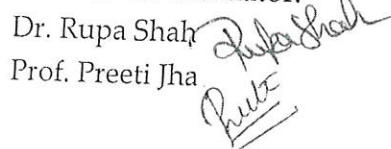 Dr. Rupa Shah RupaShah
Prof. Preeti Jha